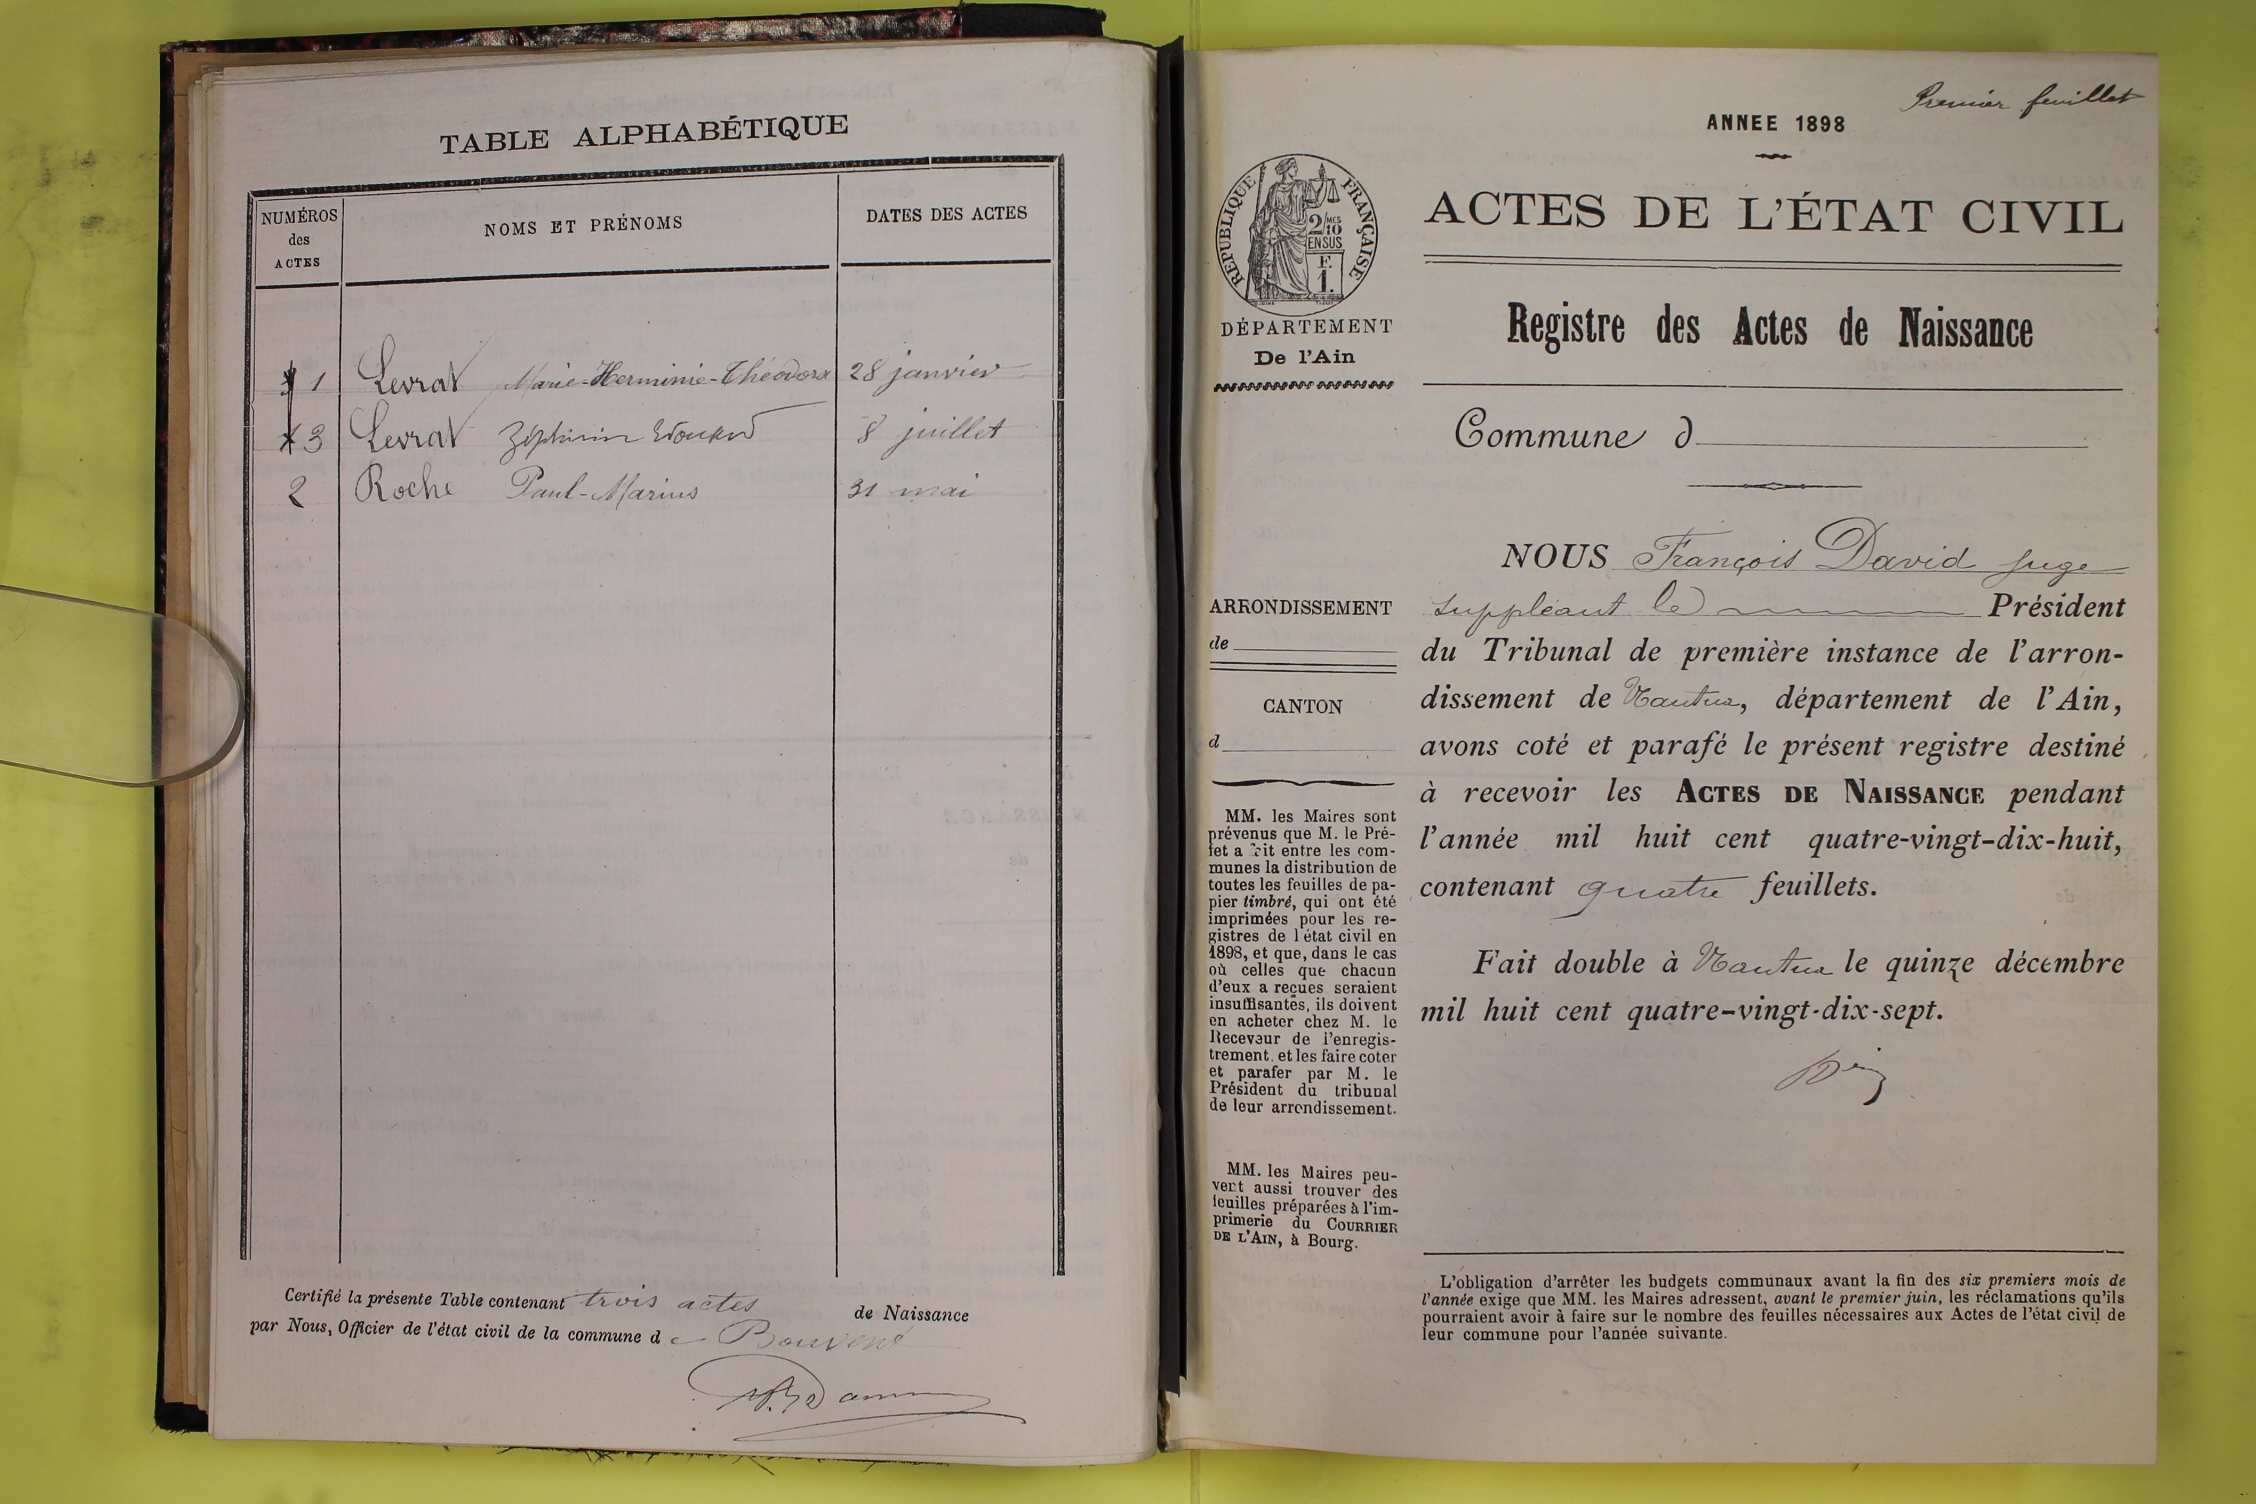 TABLE ALPHABÉTIQUE
NUMÉROS
des
ACTES
NOMS ET PRÉNOMS
DATES DES ACTES
1 Levrat Marie-Herminie-Théodora 28 janvier
3 Levrat Zéphirin Edouard 8 juillet
2 Roche Paul-Marius 31 mai
Certifié la présente Table contenant trois actes de Naissance
par Nous, Officier de l'état civil de la commune de Bouvent
Premier feuillet
ANNEE 1898
RÉPUBLIQUE FRANÇAISE
2/10
MES
EN SUS
F.
1.
DÉPARTEMENT
De l'Ain
ACTES DE L'ÉTAT CIVIL
Registre des Actes de Naissance
Commune d
ARRONDISSEMENT
de
CANTON
d
MM. les Maires sont
prévenus que M. le Pré-
fet a fait entre les com-
munes la distribution de
toutes les feuilles de pa-
pier timbré, qui ont été
imprimées pour les re-
gistres de l'état civil en
1898, et que, dans le cas
où celles que chacun
d'eux a reçues seraient
insuffisantes, ils doivent
en acheter chez M. le
Receveur de l'enregis-
trement, et les faire coter
et parafer par M. le
Président du tribunal
de leur arrondissement.
MM. les Maires peu-
vent aussi trouver des
feuilles préparées à l'im-
primerie du COURRIER
DE L'AIN, à Bourg.
NOUS François David juge
suppléant le Président
du Tribunal de première instance de l'arron-
dissement de Nantua, département de l'Ain,
avons coté et parafé le présent registre destiné
à recevoir les ACTES DE NAISSANCE pendant
l'année mil huit cent quatre-vingt-dix-huit,
contenant quatre feuillets.
Fait double à Nantua le quinze décembre
mil huit cent quatre-vingt-dix-sept.
L'obligation d'arrêter les budgets communaux avant la fin des six premiers mois de
l'année exige que MM. les Maires adressent, avant le premier juin, les réclamations qu'ils
pourraient avoir à faire sur le nombre des feuilles nécessaires aux Actes de l'état civil de
leur commune pour l'année suivante.